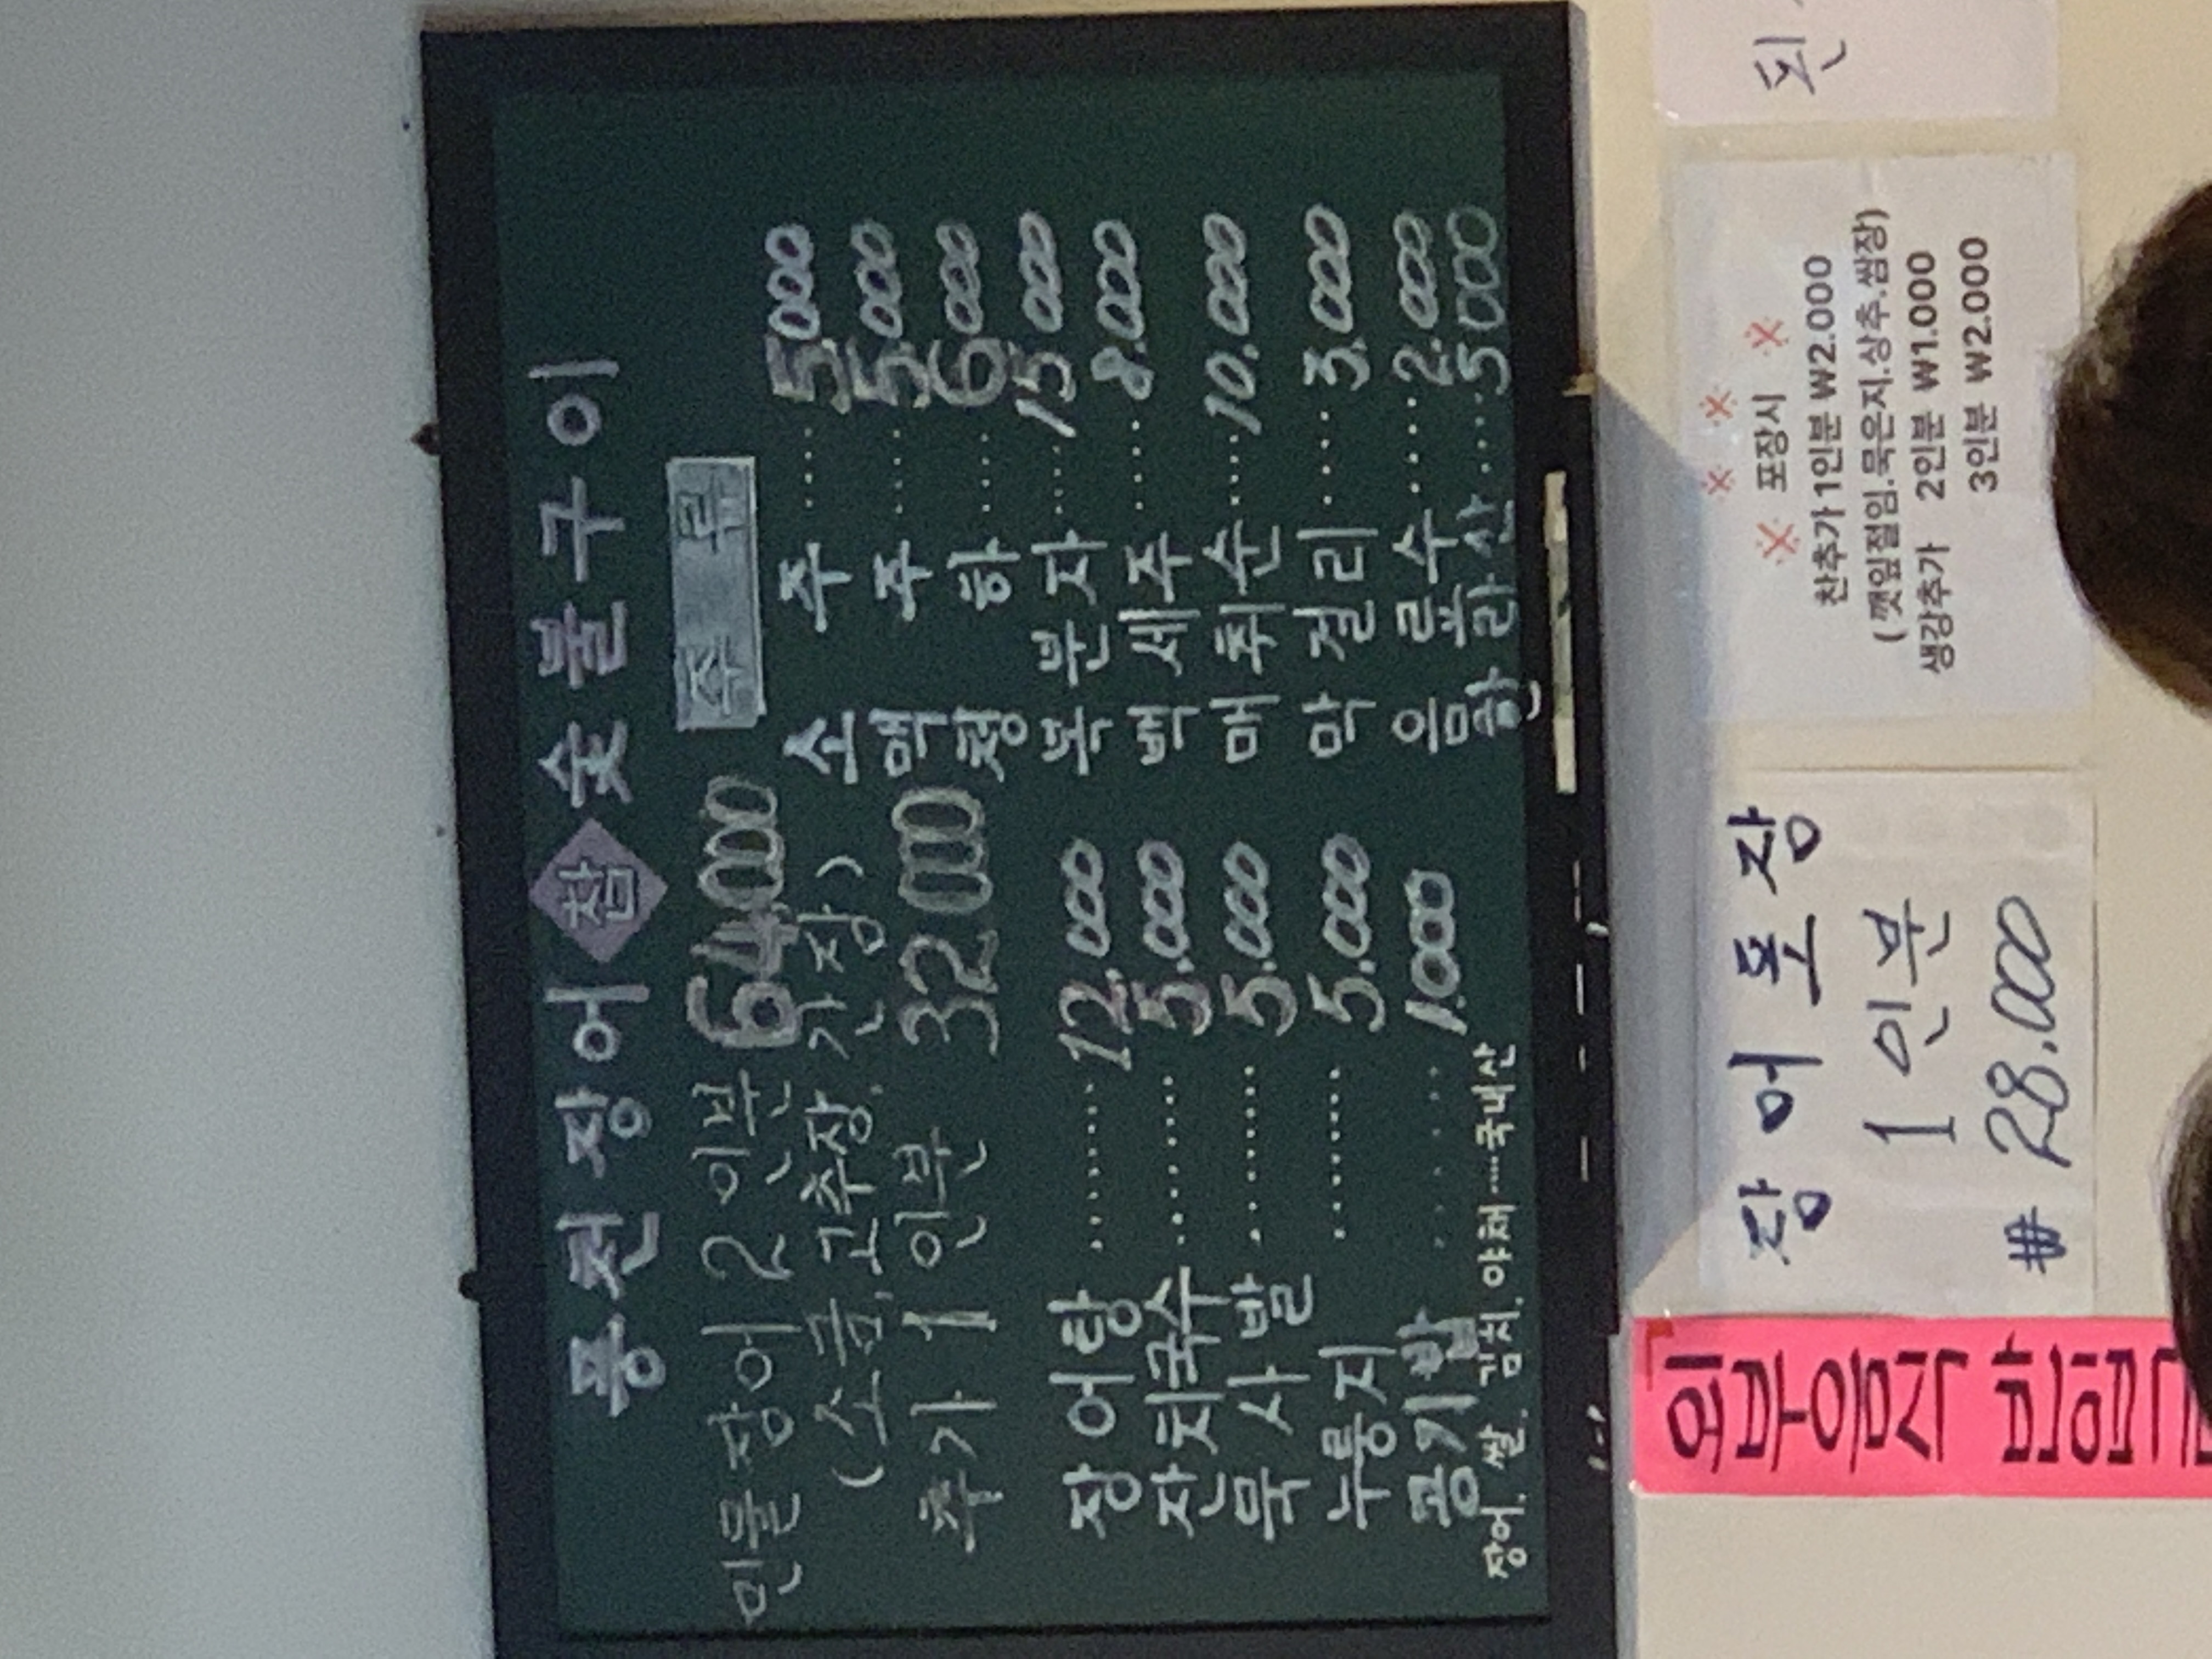 풍천장어 참 숯불구이
민물장어 2인분 64000
(소금, 고추장, 간장)
추가 1 인분 32.000
장어탕 ........ 12.000
잔치국수 ........ 5.000
묵사발 ........ 5.000
누룽지 ........ 5.000
공기밥 ..... 1.000
장어. 쌀. 김치. 야채 ......국내산
주 류
소 주 ..... 5000
맥 주 ..... 5.000
청 하 ..... 6.000
복 분 자 .... 15.000
백 세 주 ..... 8.000
매 취 순 .... 10.000
막 걸 리 ..... 3.000
음 료 수 ..... 2.000
한라산 .... 5000
외부음식 반입금
장 어 포 장
1 인분
₩ 28.000
※ ※ ※ 포장시 ※
찬추가 1인분 ₩2.000
(깻잎절임.묵은지.상추.쌈장)
생강추가 2인분 ₩1.000
3인분 ₩2.000
된